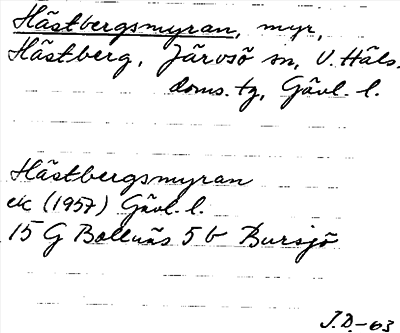 Hästbergsmyran, myr,
Hästberg, Järvsö sn, V. Häls.
doms. tg, Gävl. l.
Hästbergsmyran
ek (1957) Gävl. l.
15 G Bollnäs 5 b Bursjö
J.D.-63